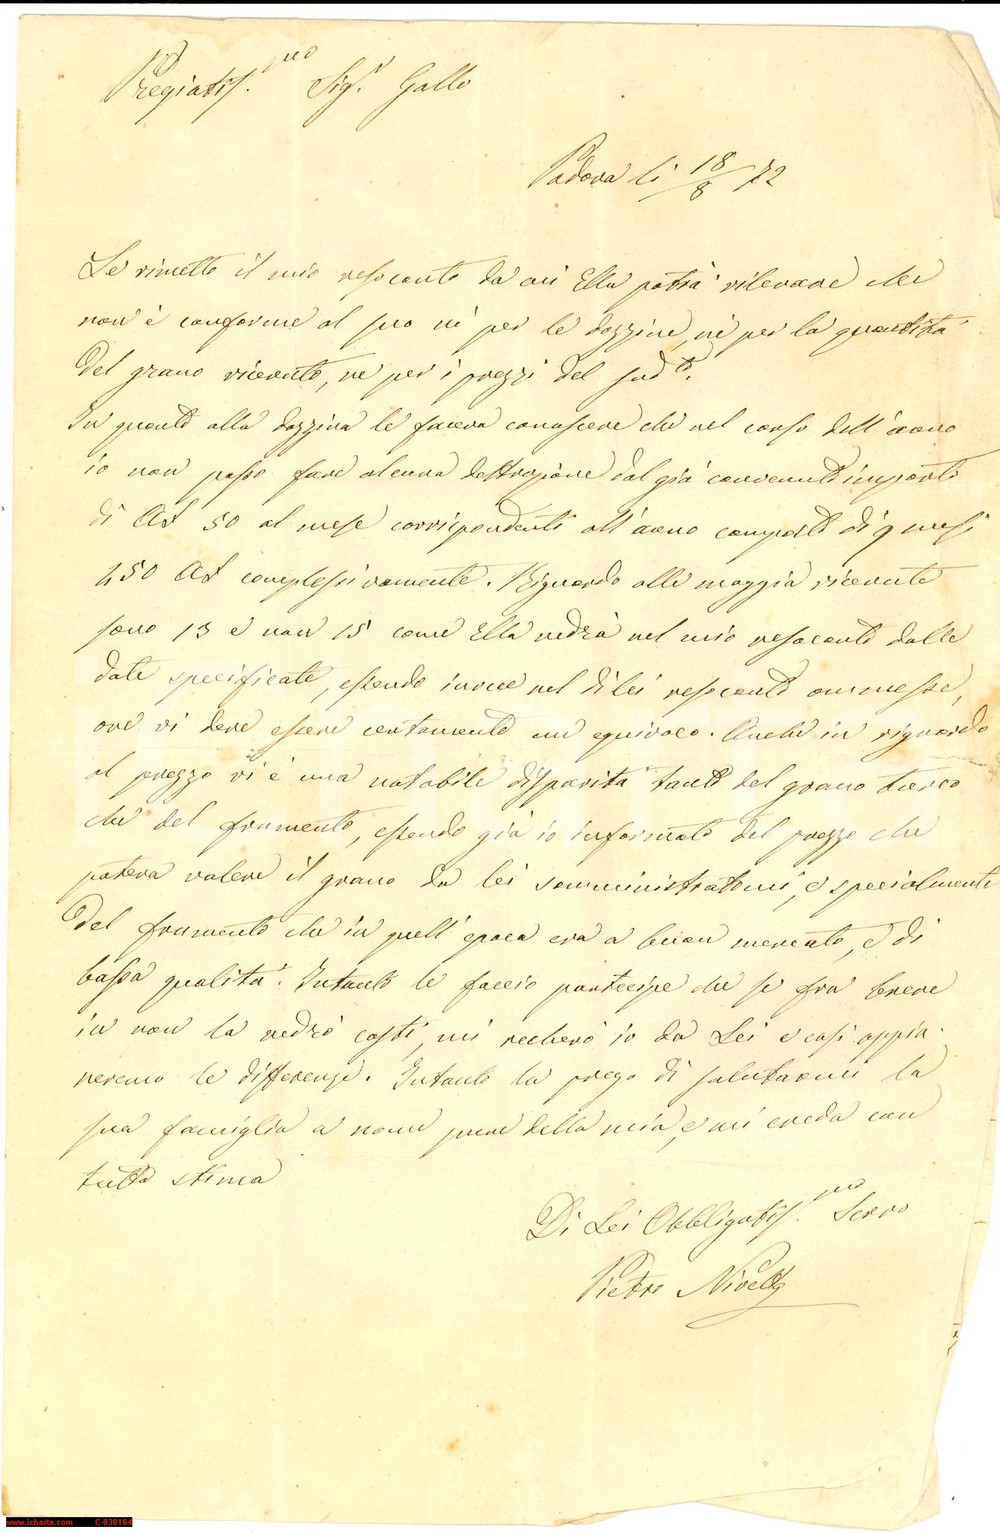 Pregiatiss.mo Sig.r Gallo
Padova li 18/8 72
Le rimetto il mio resoconto da cui Ella potrà rilevare che
non è conforme al suo nè per le dozzine, nè per la quantità
del grano ricevuto, ne per i prezzi del sud.to.
In quanto alla dozzina le faceva conoscere che nel corso dell'anno
io non posso fare alcuna detrazione dal già convenuto importo
di AL 50 al mese corrispondenti all'anno composto di 9 mesi
450 AL complessivamente. Riguardo alle moggia ricevute
sono 13 e non 15 come Ella vedrà nel mio resoconto dalle
date specificate, essendo invece nel di lei resoconto ommesse,
ove vi deve essere certamente un equivoco. Anche in riguardo
al prezzo vi è una notabile disparità tanto del grano turco
che del frumento, essendo già io informato del prezzo che
poteva valere il grano da lei somministratomi, e specialmente
del frumento che in quell'epoca era a buon mercato, e di
bassa qualità. Intanto le faccio partecipe che se fra breve
io non la vedrò costì, mi recherò io da Lei e così appia-
neremo le differenze. Intanto la prego di salutarmi la
sua famiglia a nome pure della mia, e mi creda con
tutta stima
Di Lei Obbligatiss.mo Servo
Pietro
www.icharta.com C-030164